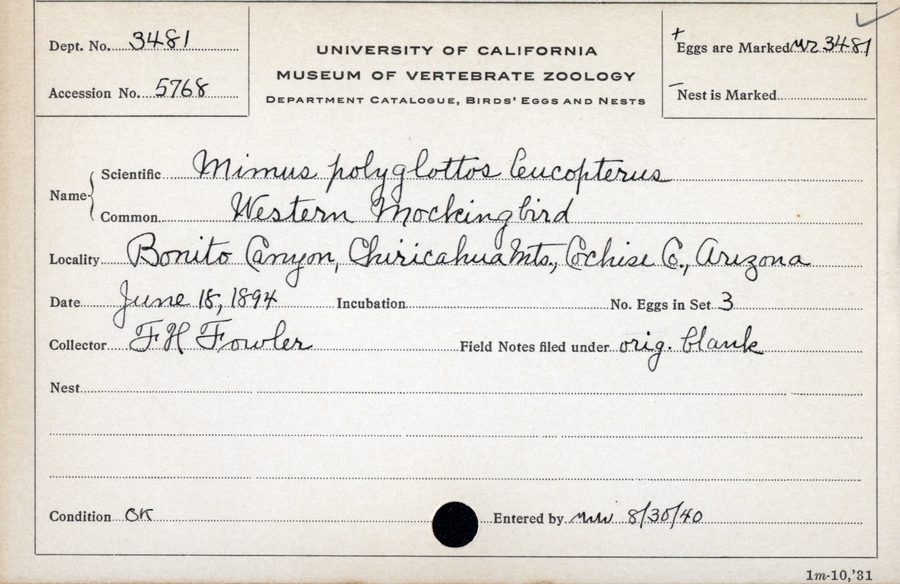 Dept. No. 3481
UNIVERSITY OF CALIFORNIA
MUSEUM OF VERTEBRATE ZOOLOGY
DEPARTMENT CATALOGUE, BIRDS' EGGS AND NESTS
+ Eggs are Marked 3481
Accession No. 5768
– Nest is Marked
Name { Scientific Mimus polyglottos leucopterus
Common Western Mockingbird
Locality Bonito Canyon, Chiricahua Mts., Cochise C., Arizona
Date June 18, 1894 Incubation No. Eggs in Set 3
Collector F H Fowler Field Notes filed under orig. blank
Nest
Condition OK Entered by 8/30/40
1m-10,'31